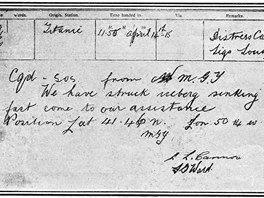 words. Origin. Station. Time handed in Via. Remarks
Titanic 11·50 April 14th 15 Distress Ca
Sigs Loud
Cqd - Sos from M.G.Y
We have struck iceberg sinking
fast come to our assistance
Position Lat 41.46 n. Lon. 50.14 w
MGY